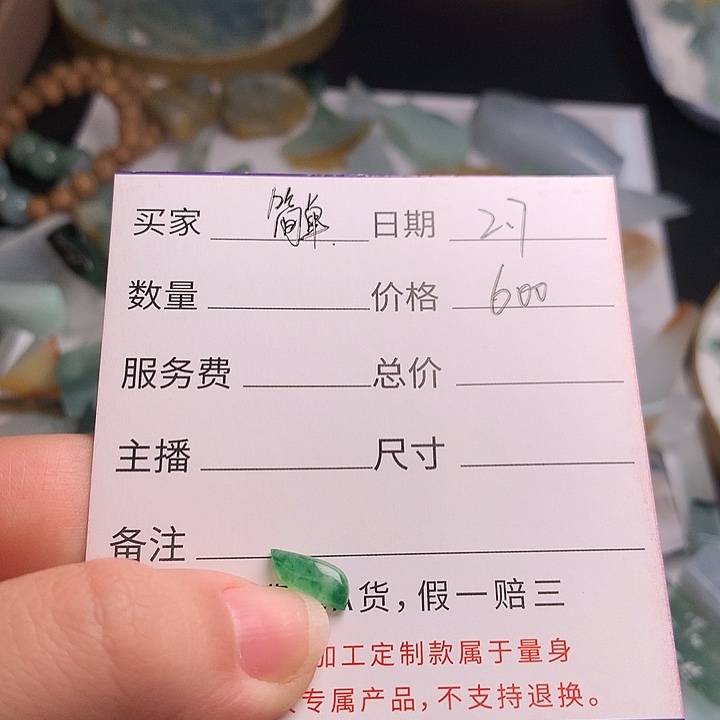 买家 简单 日期 2.7
数量 价格 600
服务费 总价
主播 尺寸
备注
货，假一赔三
加工定制款属于量身
专属产品，不支持退换。